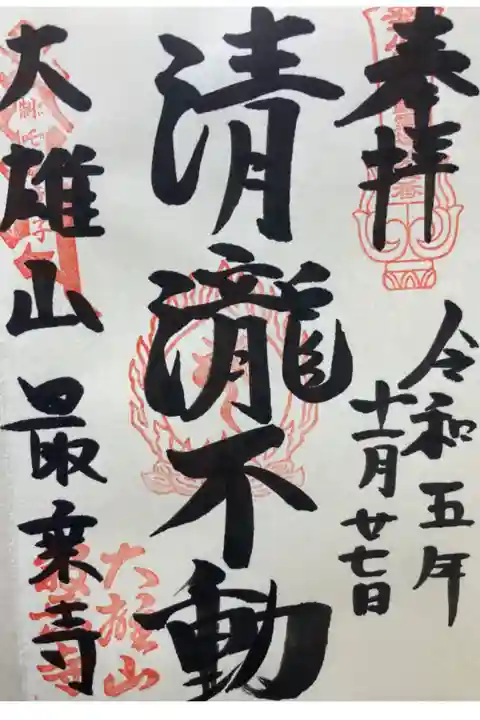 奉拝
令和五年
十一月廿七日
清瀧不動
大雄山最乗寺
大雄山
最乗寺